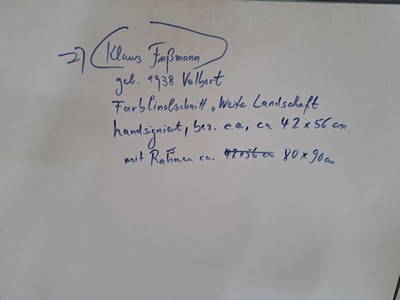 27) Klaus Fußmann
geb. 1938 Velbert
Farblinolschnitt „Weite Landschaft
handsigniert, bez. e.a., ca 42 x 56 cm
mit Rahmen ca. 42x56 cm 80 x 90 cm